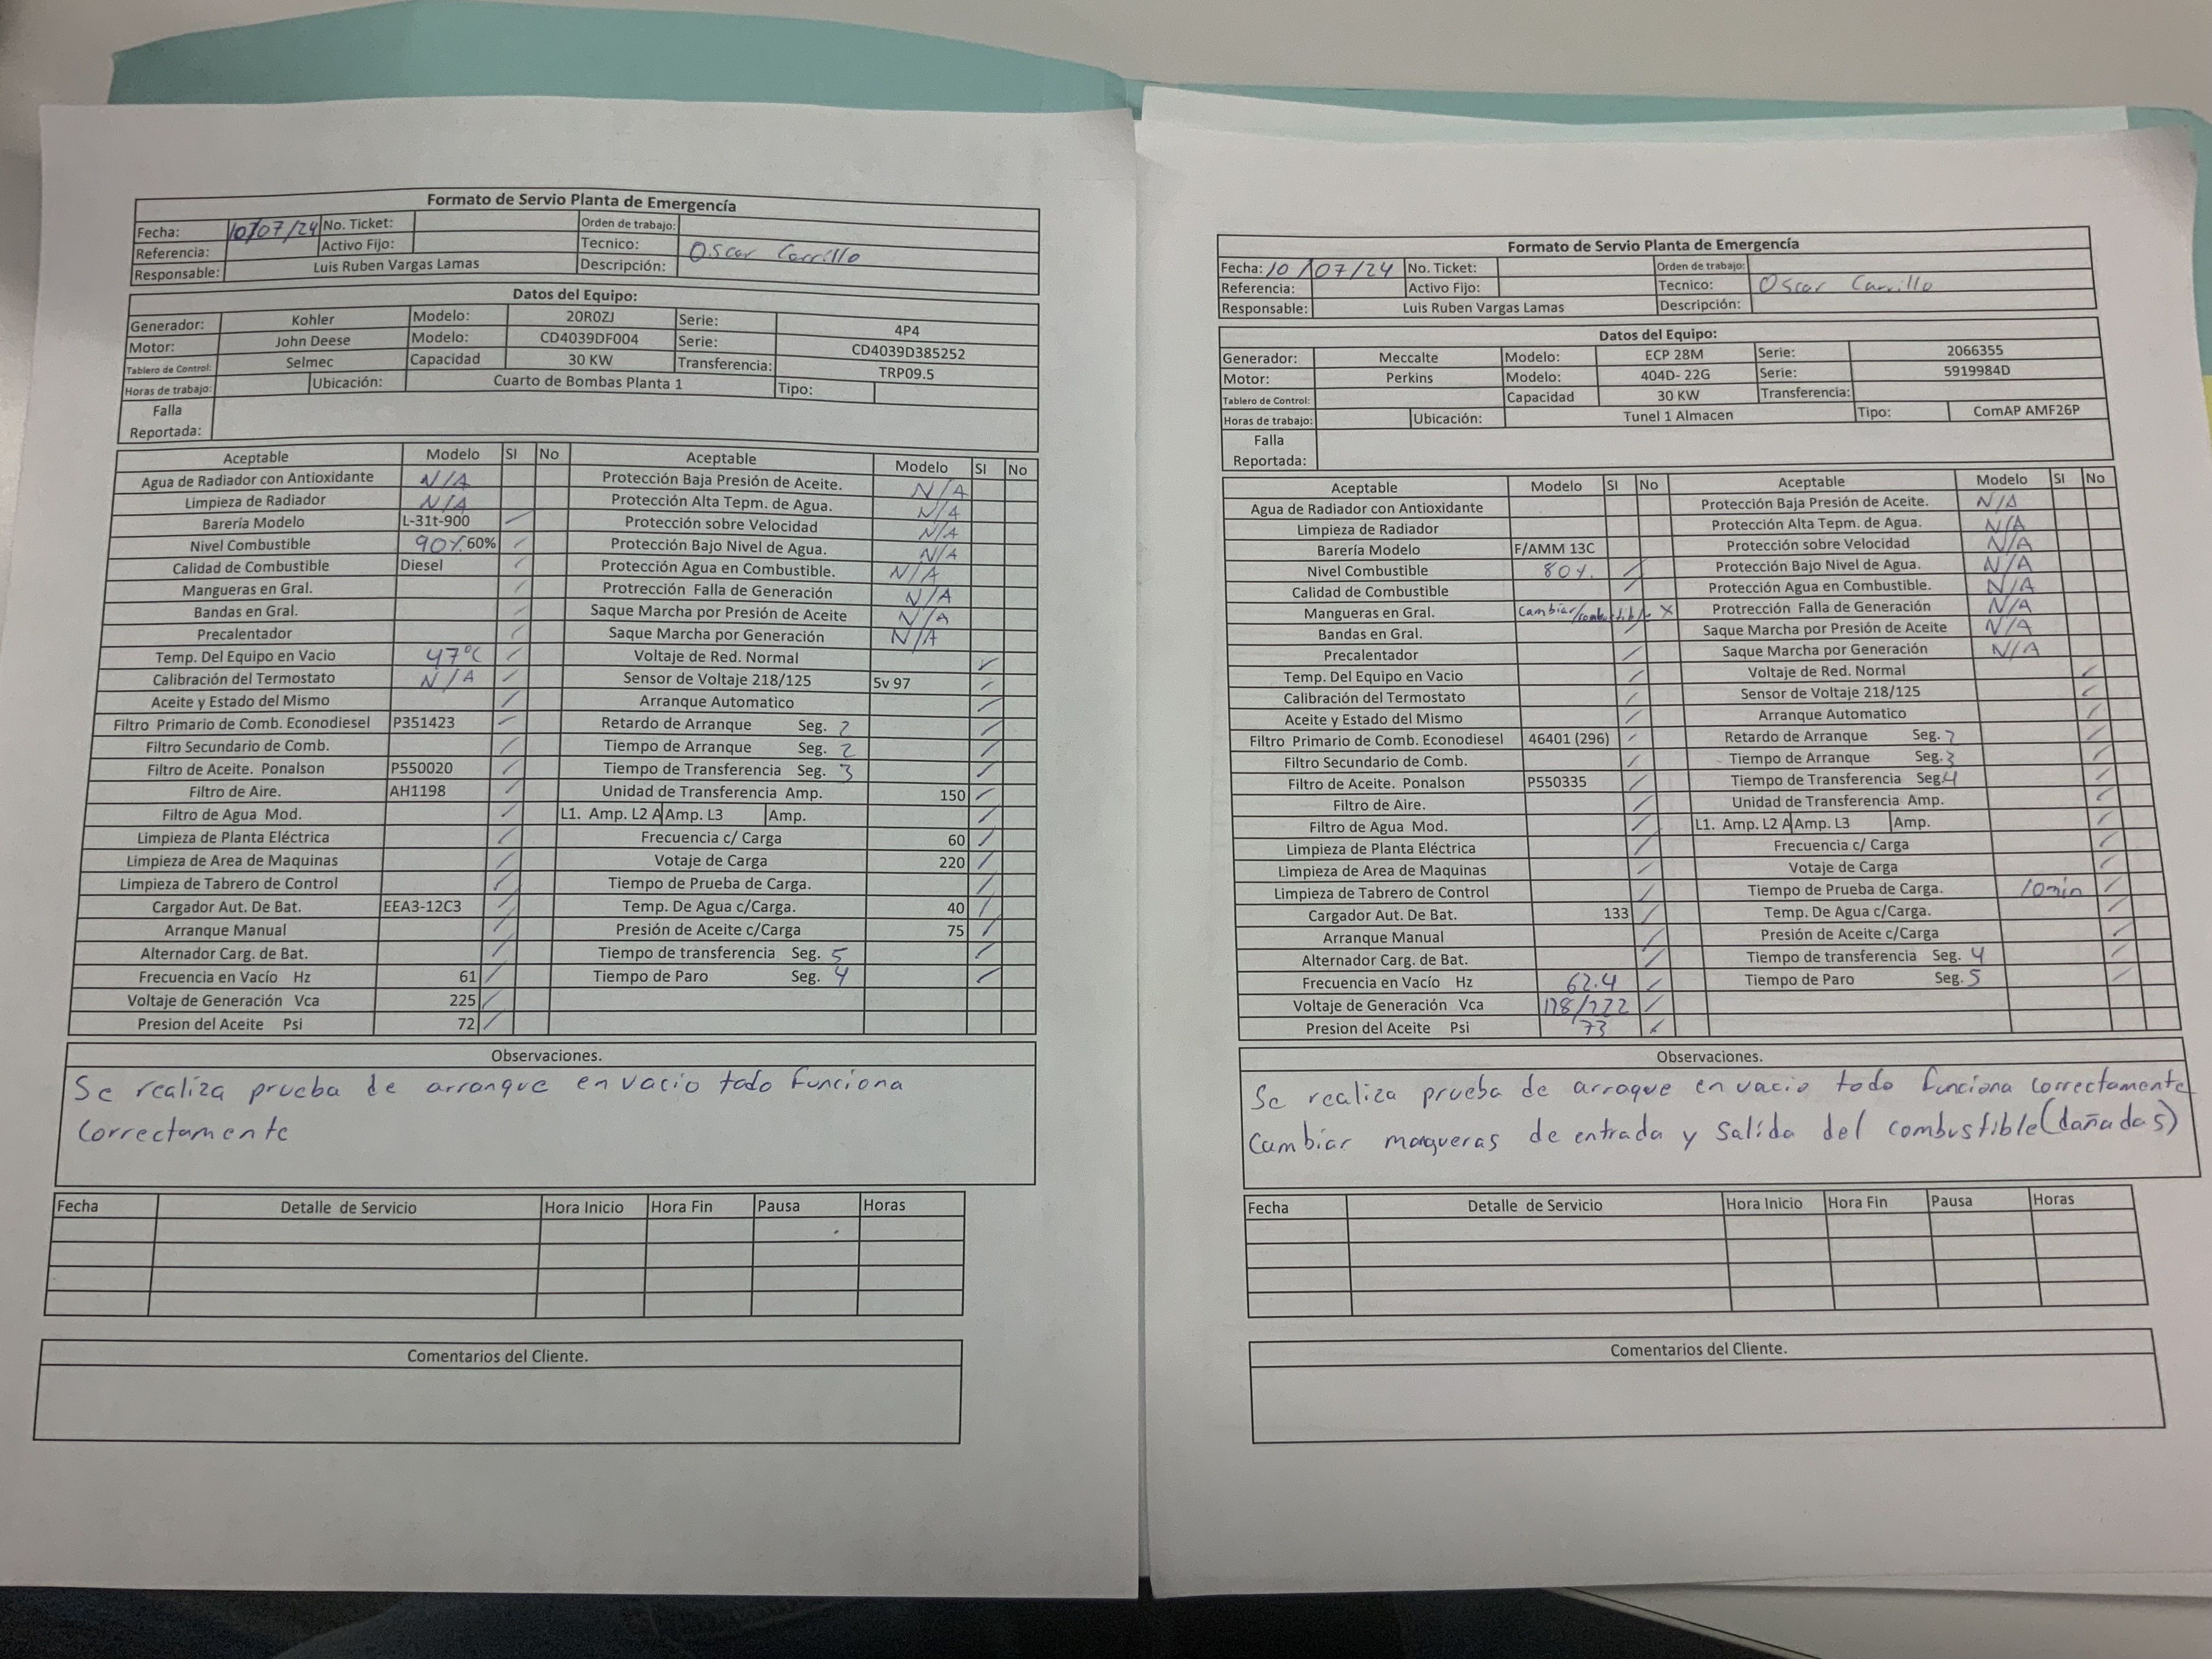 Formato de Servio Planta de Emergencía
Fecha: 10/07/24 No. Ticket: Orden de trabajo:
Referencia: Activo Fijo: Tecnico: Oscar Carrillo
Responsable: Luis Ruben Vargas Lamas Descripción:
Datos del Equipo:
Generador: Kohler Modelo: 20R0ZJ Serie: 4P4
Motor: John Deese Modelo: CD4039DF004 Serie: CD4039D385252
Tablero de Control: Selmec Capacidad 30 KW Transferencia: TRP09.5
Horas de trabajo: Ubicación: Cuarto de Bombas Planta 1 Tipo:
Falla
Reportada:
Aceptable Modelo SI No Aceptable Modelo SI No
Agua de Radiador con Antioxidante N/A Protección Baja Presión de Aceite. N/A
Limpieza de Radiador N/A Protección Alta Tepm. de Agua. N/A
Barería Modelo L-31t-900 / Protección sobre Velocidad N/A
Nivel Combustible 90% 60% / Protección Bajo Nivel de Agua. N/A
Calidad de Combustible Diesel / Protección Agua en Combustible. N/A
Mangueras en Gral. / Protrección Falla de Generación N/A
Bandas en Gral. / Saque Marcha por Presión de Aceite N/A
Precalentador / Saque Marcha por Generación N/A
Temp. Del Equipo en Vacio 47°C / Voltaje de Red. Normal ✓
Calibración del Termostato N/A / Sensor de Voltaje 218/125 Sv 97 /
Aceite y Estado del Mismo / Arranque Automatico /
Filtro Primario de Comb. Econodiesel P351423 / Retardo de Arranque Seg. 2 /
Filtro Secundario de Comb. / Tiempo de Arranque Seg. 2 /
Filtro de Aceite. Ponalson P550020 / Tiempo de Transferencia Seg. 3 /
Filtro de Aire. AH1198 / Unidad de Transferencia Amp. 150 /
Filtro de Agua Mod. / L1. Amp. L2 A Amp. L3 Amp. /
Limpieza de Planta Eléctrica / Frecuencia c/ Carga 60 /
Limpieza de Area de Maquinas / Votaje de Carga 220 /
Limpieza de Tabrero de Control / Tiempo de Prueba de Carga. /
Cargador Aut. De Bat. EEA3-12C3 / Temp. De Agua c/Carga. 40 /
Arranque Manual / Presión de Aceite c/Carga 75 /
Alternador Carg. de Bat. / Tiempo de transferencia Seg. 5 /
Frecuencia en Vacío Hz 61 / Tiempo de Paro Seg. 4 /
Voltaje de Generación Vca 225 /
Presion del Aceite Psi 72 /
Observaciones.
Se realiza prueba de arranque en vacio todo funciona
correctamente
Fecha Detalle de Servicio Hora Inicio Hora Fin Pausa Horas
Comentarios del Cliente.
Formato de Servio Planta de Emergencía
Fecha: 10/07/24 No. Ticket: Orden de trabajo:
Referencia: Activo Fijo: Tecnico: Oscar Carrillo
Responsable: Luis Ruben Vargas Lamas Descripción:
Datos del Equipo:
Generador: Meccalte Modelo: ECP 28M Serie: 2066355
Motor: Perkins Modelo: 404D- 22G Serie: 5919984D
Tablero de Control: Capacidad 30 KW Transferencia:
Horas de trabajo: Ubicación: Tunel 1 Almacen Tipo: ComAP AMF26P
Falla
Reportada:
Aceptable Modelo SI No Aceptable Modelo SI No
Agua de Radiador con Antioxidante Protección Baja Presión de Aceite. N/A
Limpieza de Radiador Protección Alta Tepm. de Agua. N/A
Barería Modelo F/AMM 13C Protección sobre Velocidad N/A
Nivel Combustible 80%. / Protección Bajo Nivel de Agua. N/A
Calidad de Combustible / Protección Agua en Combustible. N/A
Mangueras en Gral. Cambiar/combustible X Protrección Falla de Generación N/A
Bandas en Gral. / Saque Marcha por Presión de Aceite N/A
Precalentador / Saque Marcha por Generación N/A
Temp. Del Equipo en Vacio / Voltaje de Red. Normal /
Calibración del Termostato / Sensor de Voltaje 218/125 /
Aceite y Estado del Mismo / Arranque Automatico /
Filtro Primario de Comb. Econodiesel 46401 (296) / Retardo de Arranque Seg. /
Filtro Secundario de Comb. / Tiempo de Arranque Seg. 3 /
Filtro de Aceite. Ponalson P550335 / Tiempo de Transferencia Seg. 4 /
Filtro de Aire. / Unidad de Transferencia Amp. /
Filtro de Agua Mod. / L1. Amp. L2 A Amp. L3 Amp. /
Limpieza de Planta Eléctrica / Frecuencia c/ Carga /
Limpieza de Area de Maquinas / Votaje de Carga /
Limpieza de Tabrero de Control / Tiempo de Prueba de Carga. 10min /
Cargador Aut. De Bat. 133 / Temp. De Agua c/Carga. /
Arranque Manual / Presión de Aceite c/Carga /
Alternador Carg. de Bat. / Tiempo de transferencia Seg. 4 /
Frecuencia en Vacío Hz 62.4 / Tiempo de Paro Seg. 5 /
Voltaje de Generación Vca /
Presion del Aceite Psi 73 /
Observaciones.
Se realiza prueba de arraque en vacio todo funciona correctamente
Cambiar mangueras de entrada y salida del combustible(dañadas)
Fecha Detalle de Servicio Hora Inicio Hora Fin Pausa Horas
Comentarios del Cliente.